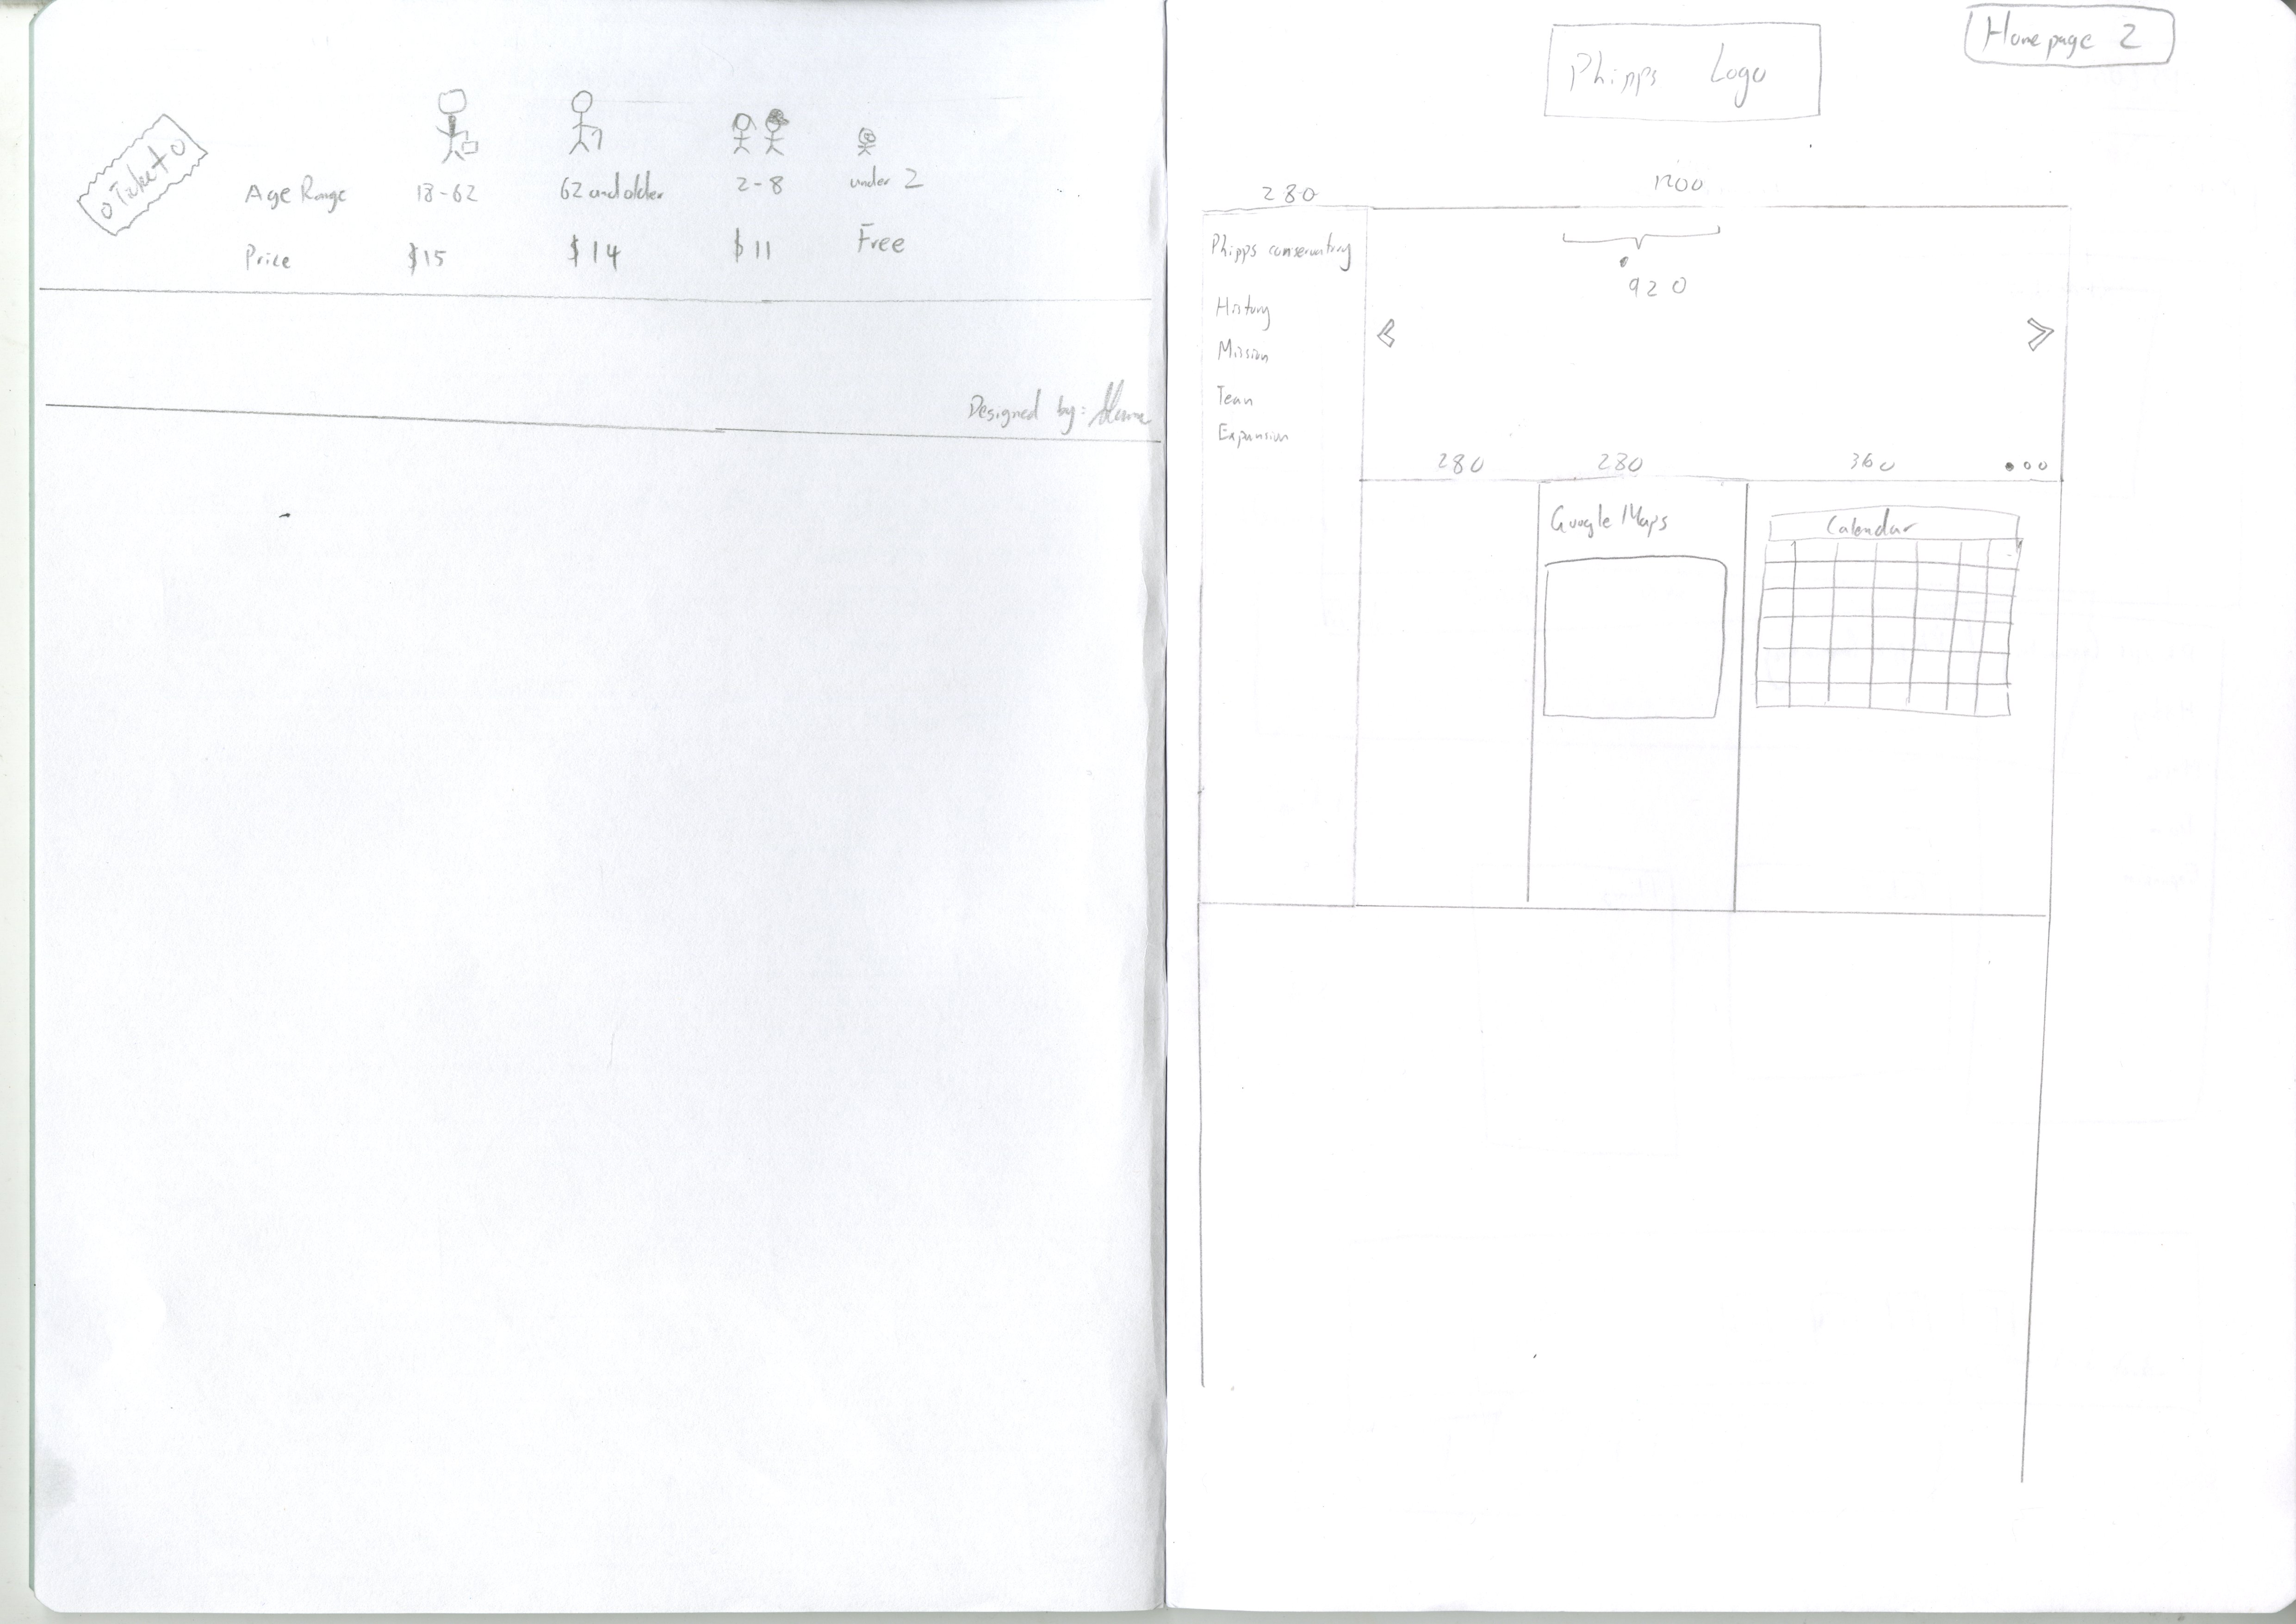 Ticket
Age Range 18-62 62 and older 2-8 under 2
Price $15 $14 $11 Free
Designed by:
Homepage 2
Phipps Logo
280 1200
Phipps conservatory
920
History
Mission
Team
Expansion
280 280 360
Google Maps
Calendar